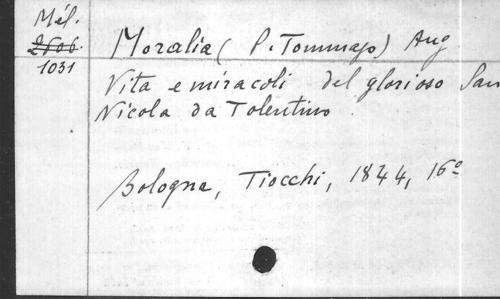 Mél.
2606.
1031
Moralia (P. Tommaso) Aug
Vita e miracoli del glorioso San
Nicola da Tolentino.
Bologna, Tiocchi, 1844, 16º